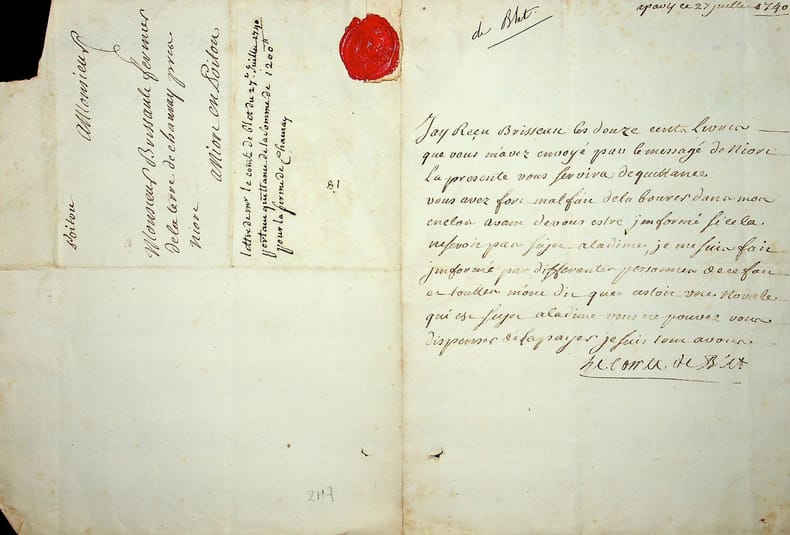 A Monsieur
Monsieur Brissault fermier
de la terre de chauray pres
niort
A Niort en Poitou
Poitou
lettre de mr le comte de Blet du 27e Juillet 1740
portant quittance de la somme de 1200tt
pour la ferme de Chauray
81
2117
de Blet.
a paris ce 27 juillet 1740
Jay Reçu Brisseau les douze cents Livres
que vous m'avez envoyé par le messagé de Niort
La presente vous servira de quittance
vous avez fort mal fait de labourer dans mon
enclos avant de vous estre jnformé si cela
nestoit pas sujet a la dime, je me suis fait
jnformé par differentes personnes de ce fait
et touttes mont dit que cestoit une Novale
qui est sujet a la dime vous ne pouvez vous
dispenser de la payer je suis tout a vous
Le Comte de Blet